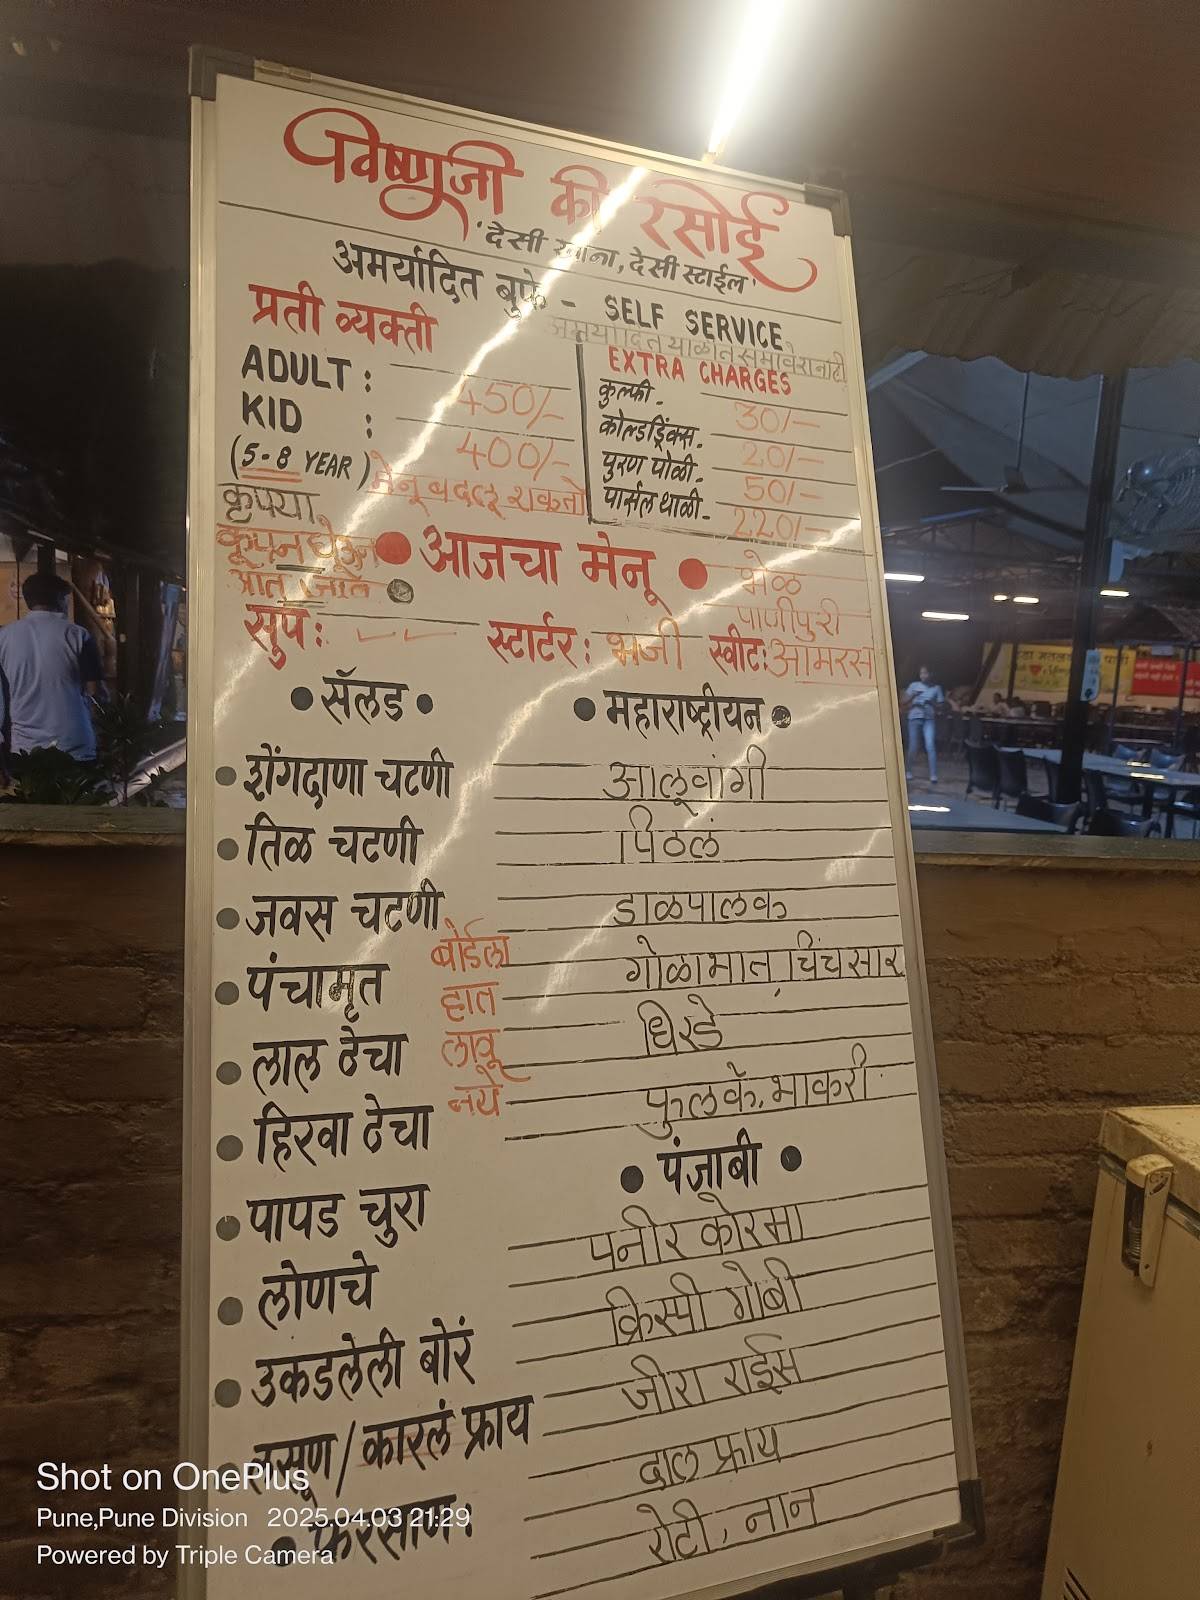 विष्णुजी की रसोई
'देसी खाना, देसी स्टाईल'
अमर्यादित बुफे - SELF SERVICE
प्रती व्यक्ती
ADULT : 450/-
KID : 400/-
(5-8 YEAR)
मेनू बदलू शकतो
अमर्यादित थाळीत समावेश नाही
EXTRA CHARGES
कुल्फी - 30/-
कोल्डड्रिंक्स - 20/-
पुरण पोळी - 50/-
पार्सल थाळी - 220/-
कृपया
कूपन घेऊन
आत जावे
• आजचा मेनू •
भेळ
पाणीपुरी
सुप :
स्टार्टर : भजी
स्वीट: आमरस
• सॅलड •
• शेंगदाणा चटणी
• तिळ चटणी
• जवस चटणी
• पंचामृत
• लाल ठेचा
• हिरवा ठेचा
• पापड चुरा
• लोणचे
• उकडलेली बोरं
• लसूण / कारलं फ्राय
• फरसाण :
बोर्डला
हात
लावू
नये
• महाराष्ट्रीयन •
आलूवांगी
पिठलं
डाळपालक
गोळाभात, चिंचसार
धिरडे
फुलके, भाकरी
• पंजाबी •
पनीर कोरमा
क्रिस्पी गोबी
जीरा राईस
दाल फ्राय
रोटी, नान
Shot on OnePlus
Pune,Pune Division 2025.04.03 21:29
Powered by Triple Camera